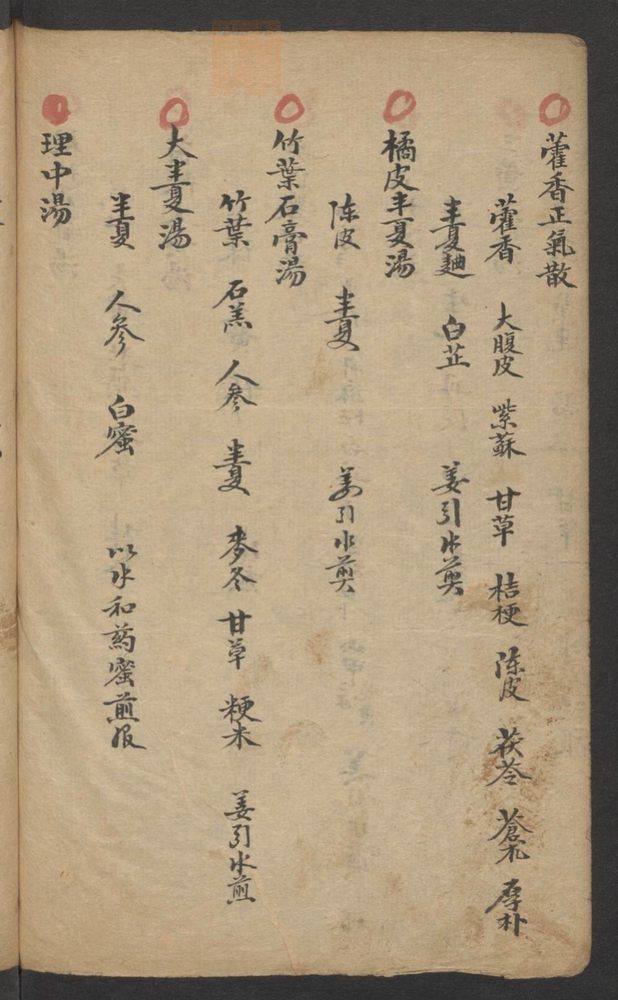 藿香正氣散
藿香 大腹皮 紫蘇 甘草 桔梗 陈皮 茯苓 蒼朮 厚朴
半夏麯 白芷 姜引水煎
橘皮半夏湯
陈皮 半夏 姜引水煎
竹葉石膏湯
竹葉 石羔 人參 半夏 麥冬 甘草 粳米 姜引水煎
大半夏湯
半夏 人參 白蜜 以水和蒟蜜煎服
理中湯